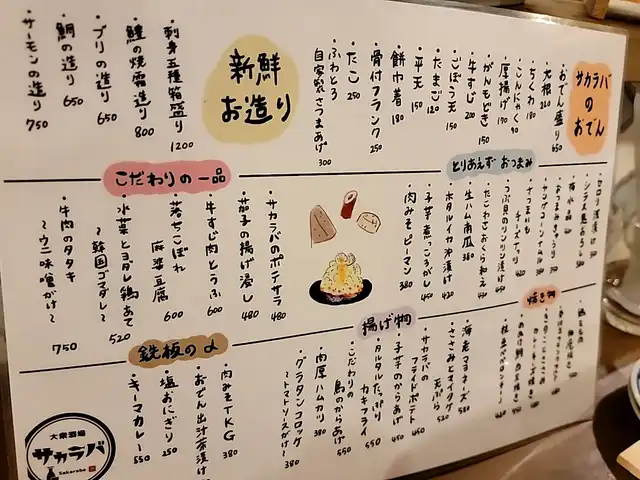 サカラバのおでん
・おでん盛り 650
・大根 220
・ちくわ 180
・こんにゃく 90
・厚揚げ 190
・がんもどき 150
・牛すじ 200
・ごぼう天 150
・たまご 120
・平天 150
・餅巾着 180
・骨付フランク 250
・たこ 250
・ふわとろ
自家製さつまあげ 300
新鮮お造り
・刺身五種箱盛り 1200
・鰹の焼霜造り 800
・ブリの造り 650
・鯛の造り 650
・サーモンの造り 750
とりあえずおつまみ
・セロリ浅漬け
・おつまみきゅうり
・さつまいも
チーズナッツ
・つぶ貝のワンワン漬け
・たこわさおくら和え 430
・生ハム南瓜 380
・ホタルイカ沖漬け 420
・子芋煮っころがし 450
・肉みそピーマン 380
こだわりの一品
・サカラバのポテサラ 480
・茄子の揚げ浸し 480
・牛すじ肉とうふ 600
・落ちこぼれ
麻婆豆腐 600
・水菜とヨダレ鶏あて
〜韓国ゴマダレ〜 520
・牛肉のタタキ
〜ウニ味噌がけ〜 750
焼き物
揚げ物
・海老マヨネーズ 580
・ささみとマイタケ
天ぷら 520
・サカラバの
フライドポテト 450
・子芋のからあげ 450
・タルタルたっぷり
カキフライ 550
・こだわりの
鳥のからあげ 550
・肉厚ハムカツ 380
・グラタンコロッケ
〜トマトソースがけ〜 380
鉄板の〆
・肉みそTKG 380
・おでん出汁茶漬け
・塩おにぎり 250
・キーマカレー 550
大衆酒場
サカラバ
Sakaraba